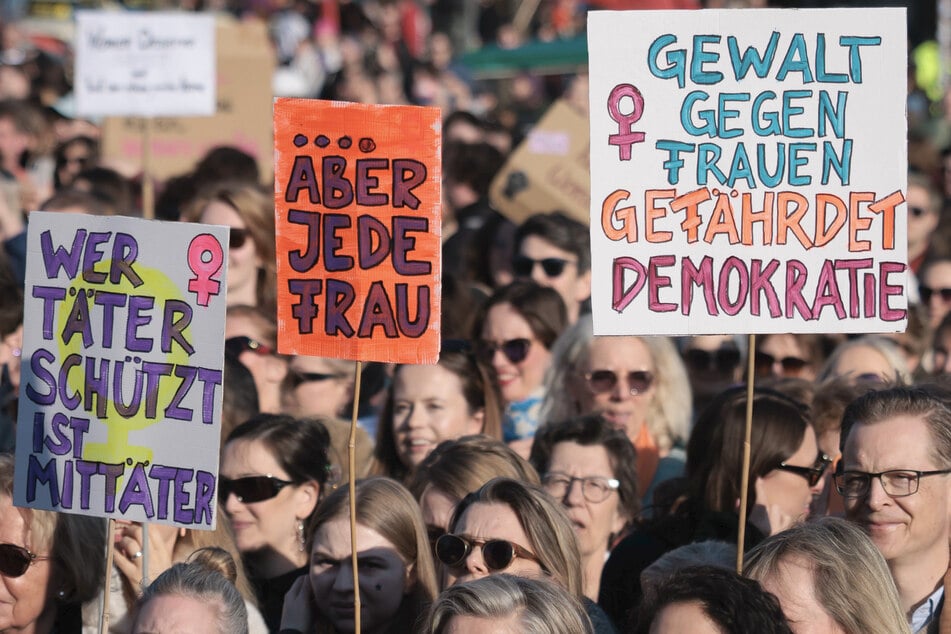 WER
TÄTER
SCHÜTZT
IST
MITTÄTER
ABER
JEDE
FRAU
GEWALT
GEGEN
FRAUEN
GEFÄHRDET
DEMOKRATIE